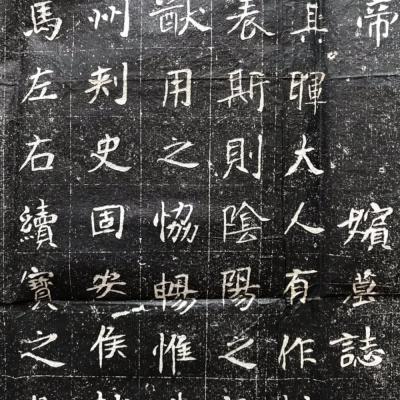 帝　嬪墓誌
其暉大人有作
表斯則陰陽之
猷用之恊暢惟
州刾史固安侯
馬左右續寶之